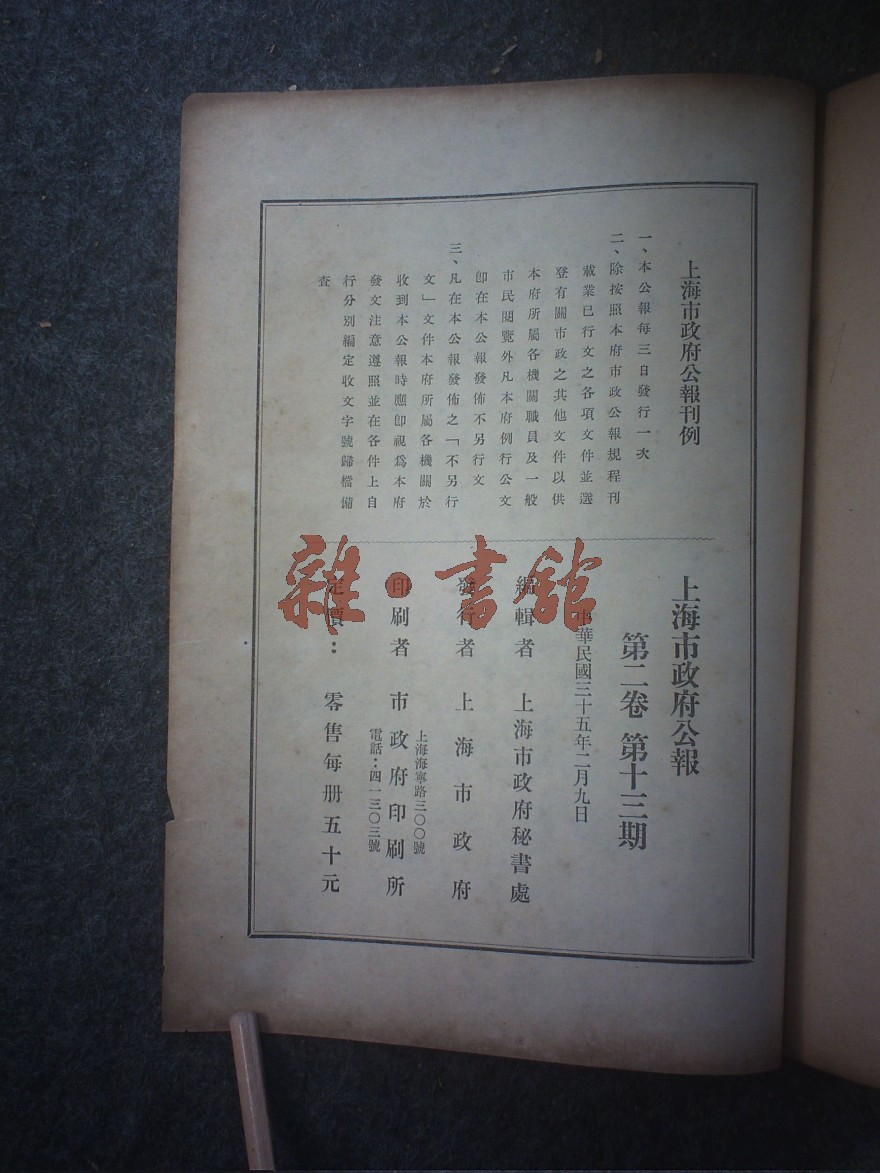 上海市政府公報刊例
一、本公報每三日發行一次
二、除按照本府市政公報規程刊
載業已行文之各項文件並選
登有關市政之其他文件以供
本府所屬各機關職員及一般
市民閱覽外凡本府例行公文
卽在本公報發佈不另行文
三、凡在本公報發佈之「不另行
文」文件本府所屬各機關於
收到本公報時應卽視爲本府
發文注意遵照並在各件上自
行分別編定收文字號歸檔備
查
上海市政府公報
第二卷 第十三期
中華民國三十五年二月九日
編輯者 上海市政府秘書處
發行者 上海市政府
印刷者 市政府印刷所
上海海寧路三〇〇號
電話：四一三〇三號
定價： 零售每册五十元
雜·書館